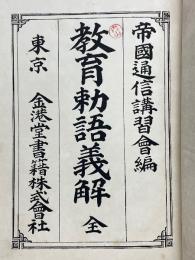 帝國通信講習會編
教育勅語義解 全
東京 金港堂書籍株式會社